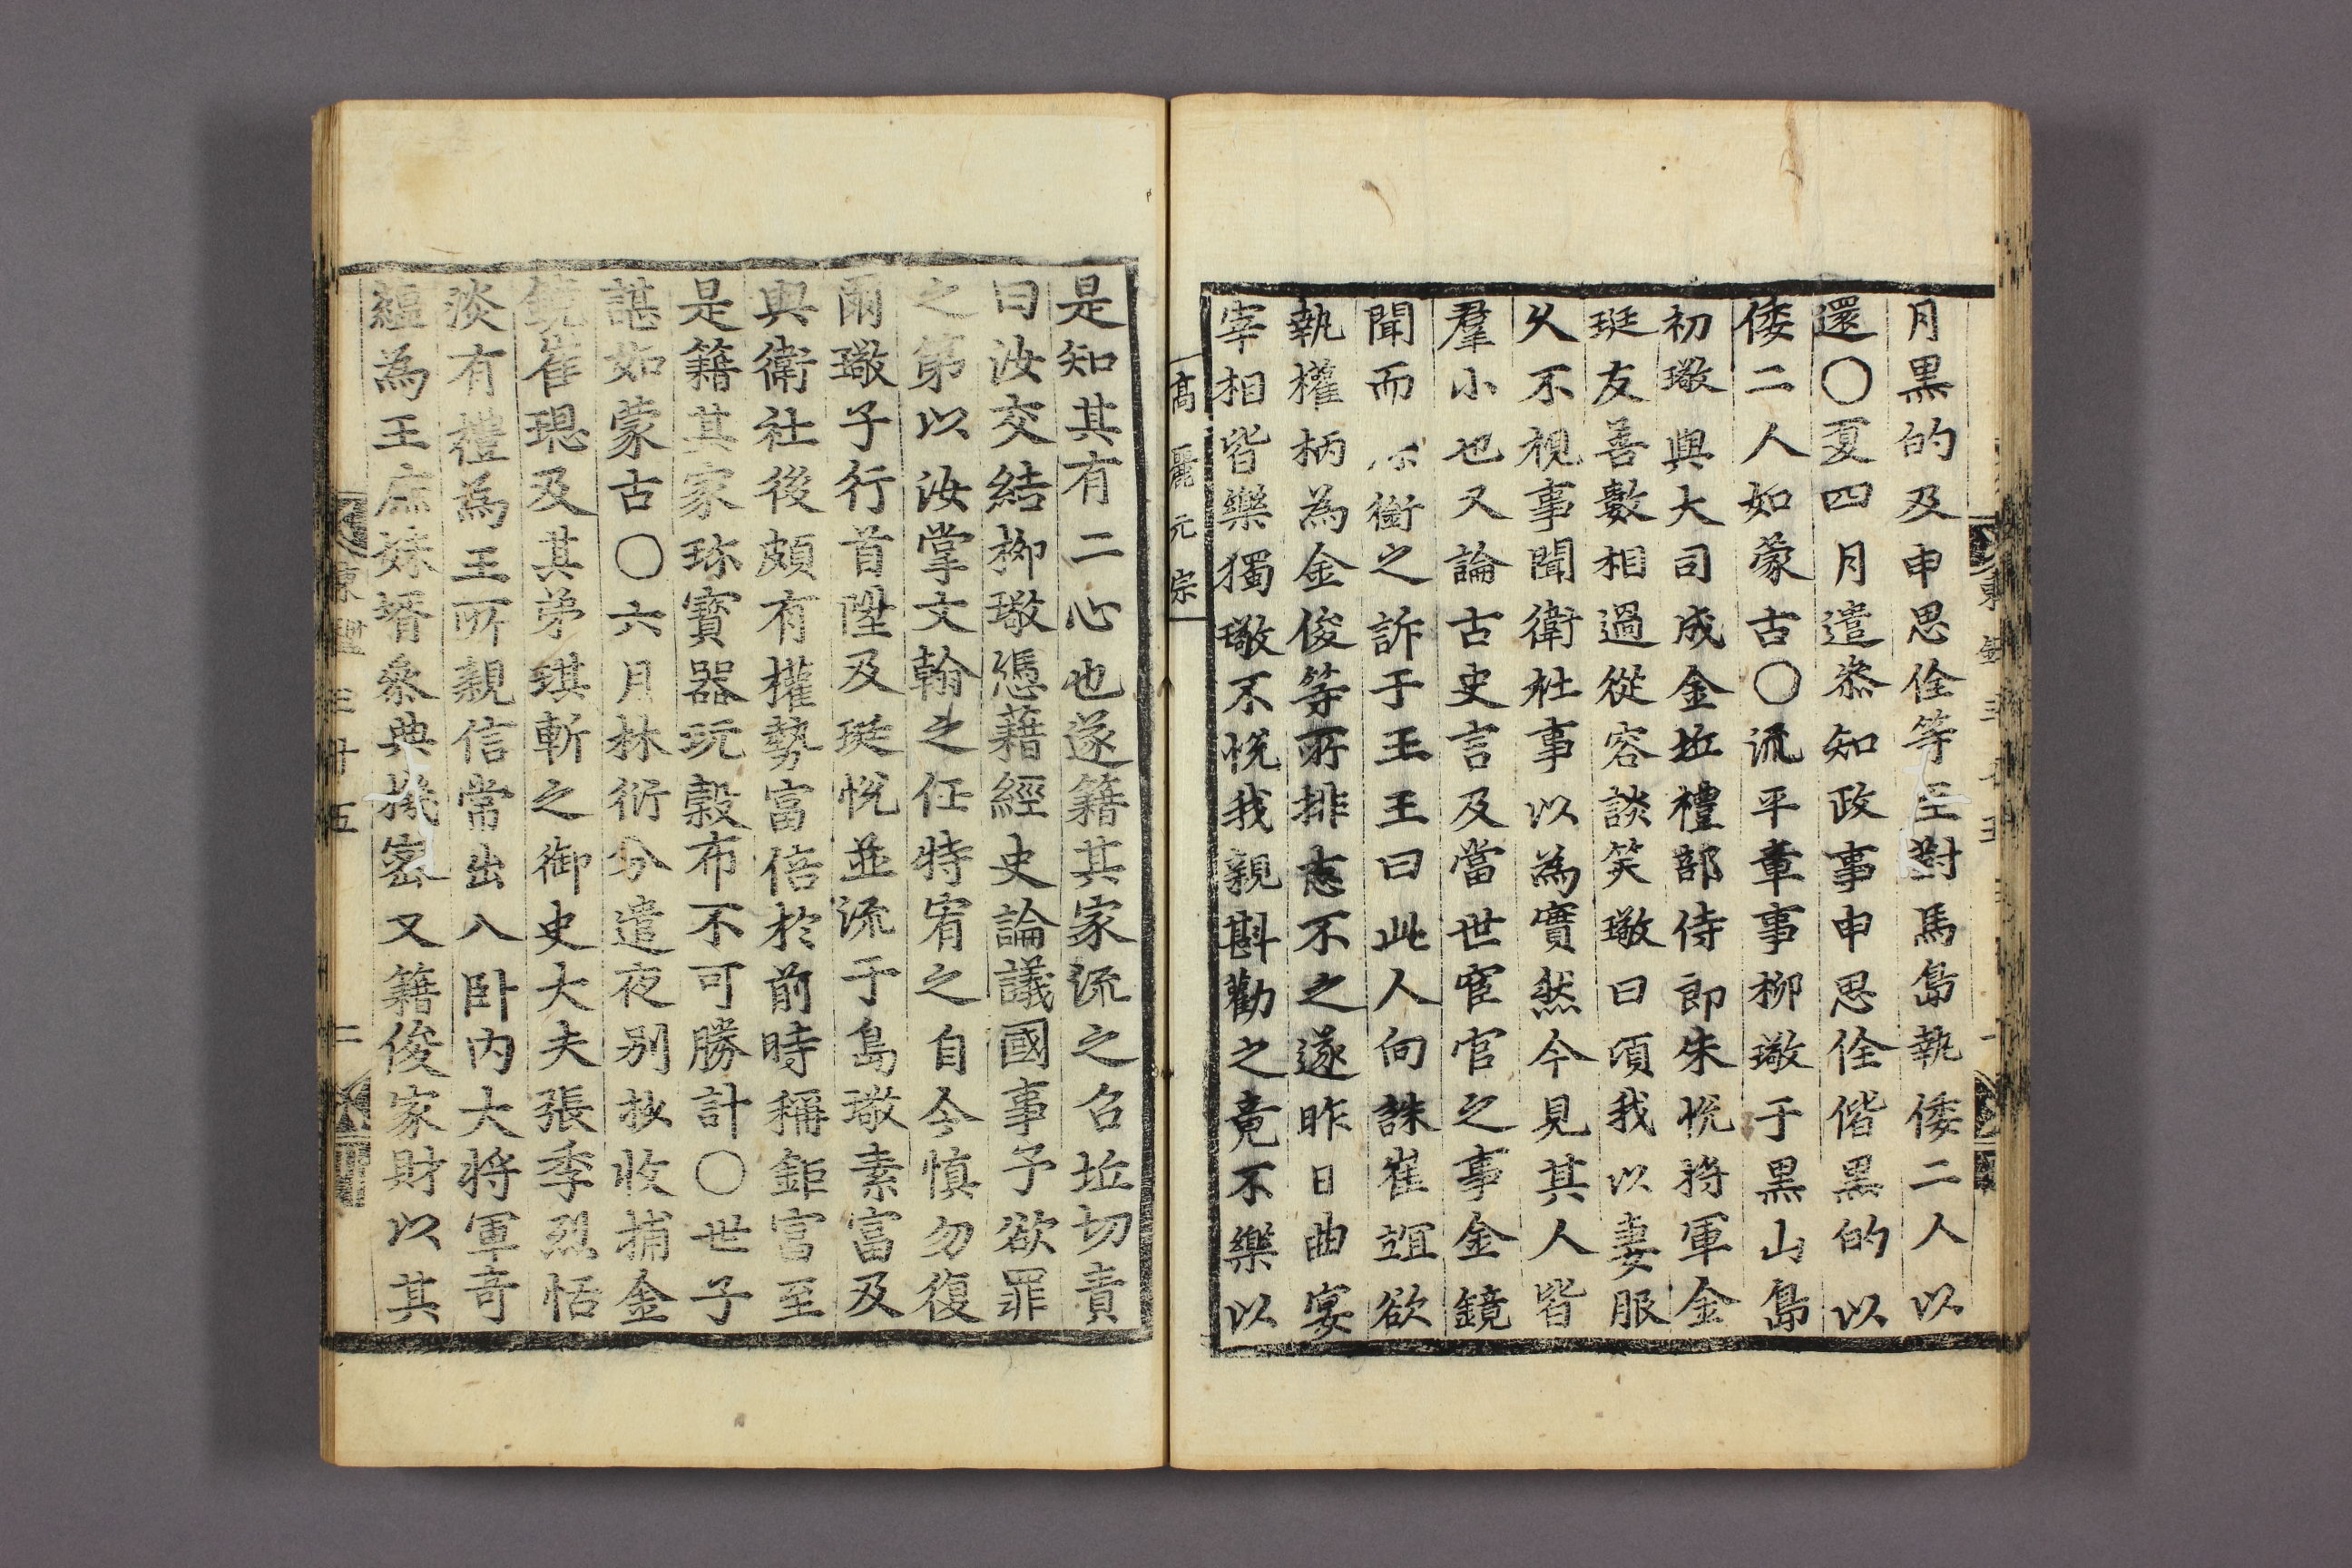 月黒的及申思佺等至對馬島執倭二人以
還〇夏四月遣叅知政事申思佺偕黒的以
倭二人如蒙古〇流平章事柳璥于黒山島
初璥與大司成金坵禮部侍郎朱悅將軍金
珽友善數相過從容談笑璥曰頃我以妻服
久不視事聞衛社事以為實然今見其人皆
羣小也又論古史言及當世宦官之事金鏡
聞而銜之訴于王王曰此人向誅崔竩欲
執權柄為金俊等所排志不之遂昨日曲宴
宰相皆樂獨璥不悅我親斟勸之竟不樂以
高麗元宗
是知其有二心也遂籍其家流之召坵切責
曰汝交結柳璥憑藉經史論議國事予欲罪
之第以汝掌文翰之任特宥之自今愼勿復
爾璥子行首陞及珽悅並流于島璥素富及
與衛社後頗有權勢富倍於前時稱鉅富至
是籍其家珎寳器玩穀布不可勝計〇世子
諶如蒙古〇六月林衍分遣夜别抄收捕金
鏡崔𤧚及其弟琪斬之御史大夫張季烈恬
淡有禮為王所親信常出入卧内大將軍竒
蘊為王庶妹壻叅典機密又籍俊家財以其
三十五
二